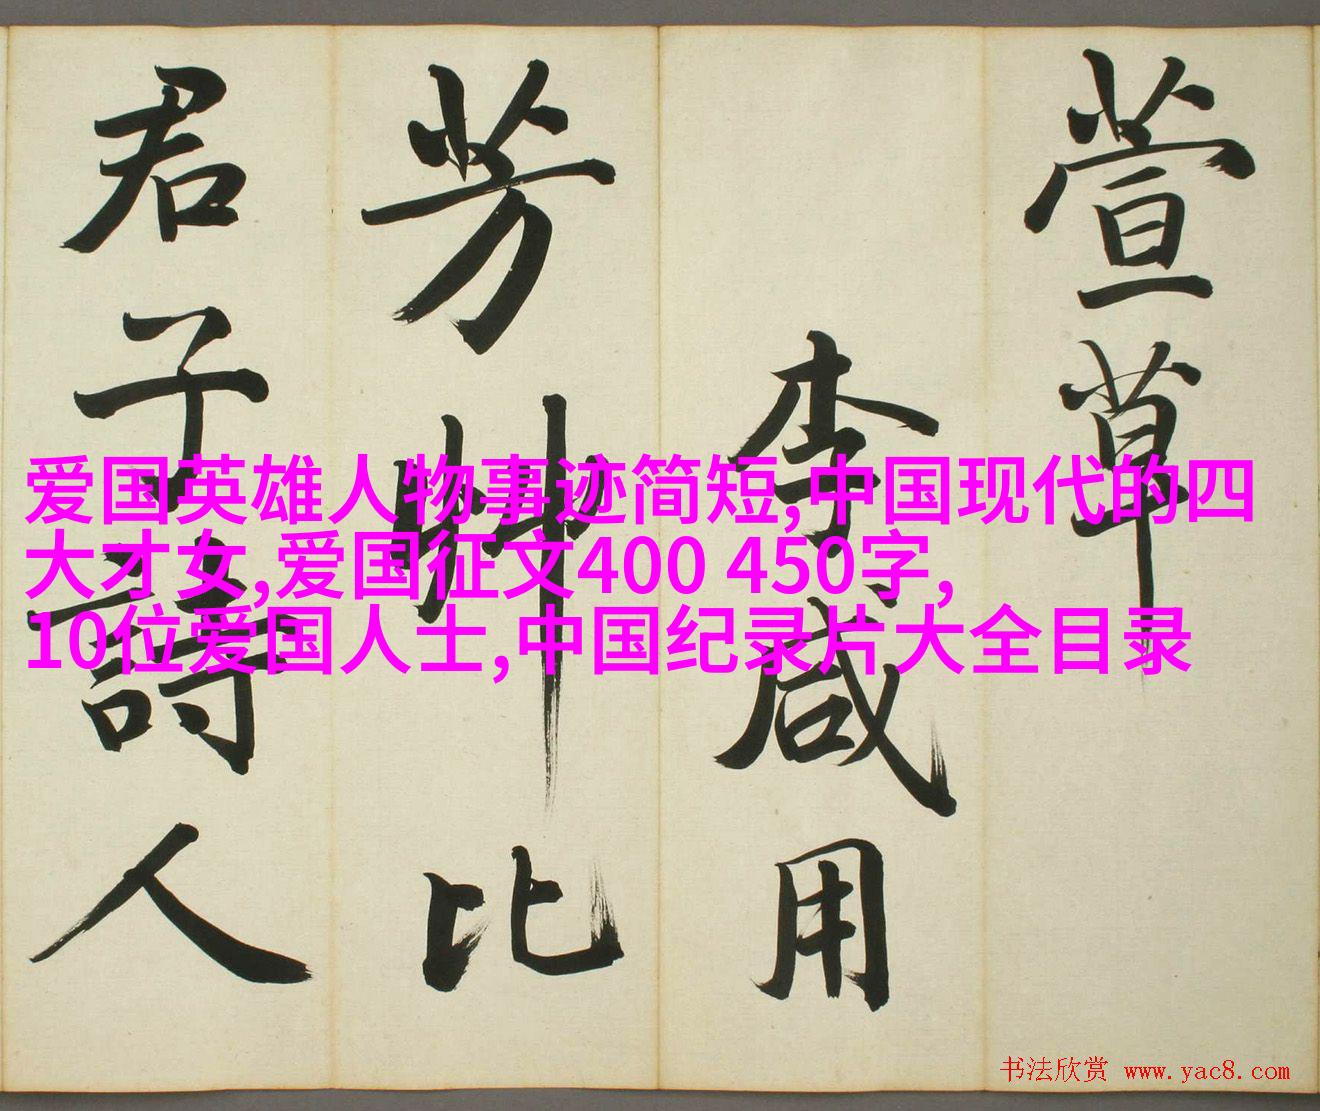 萱草
李咸用
芳艸比
君子詩人
爱国英雄人物事迹简短,中国现代的四
大才女,爱国征文400 450字,
10位爱国人士,中国纪录片大全目录
书法欣赏 www.yac8.com